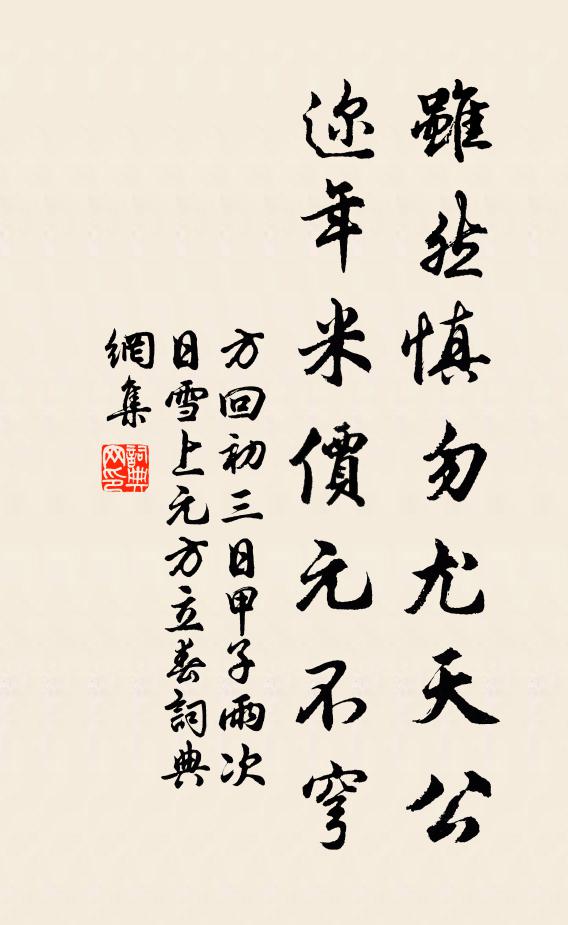 雖然慎勿尤天公
迩年米價元不穹
方回初三日甲子雨次
日雪上元方立春詞典
網集
詞典網印